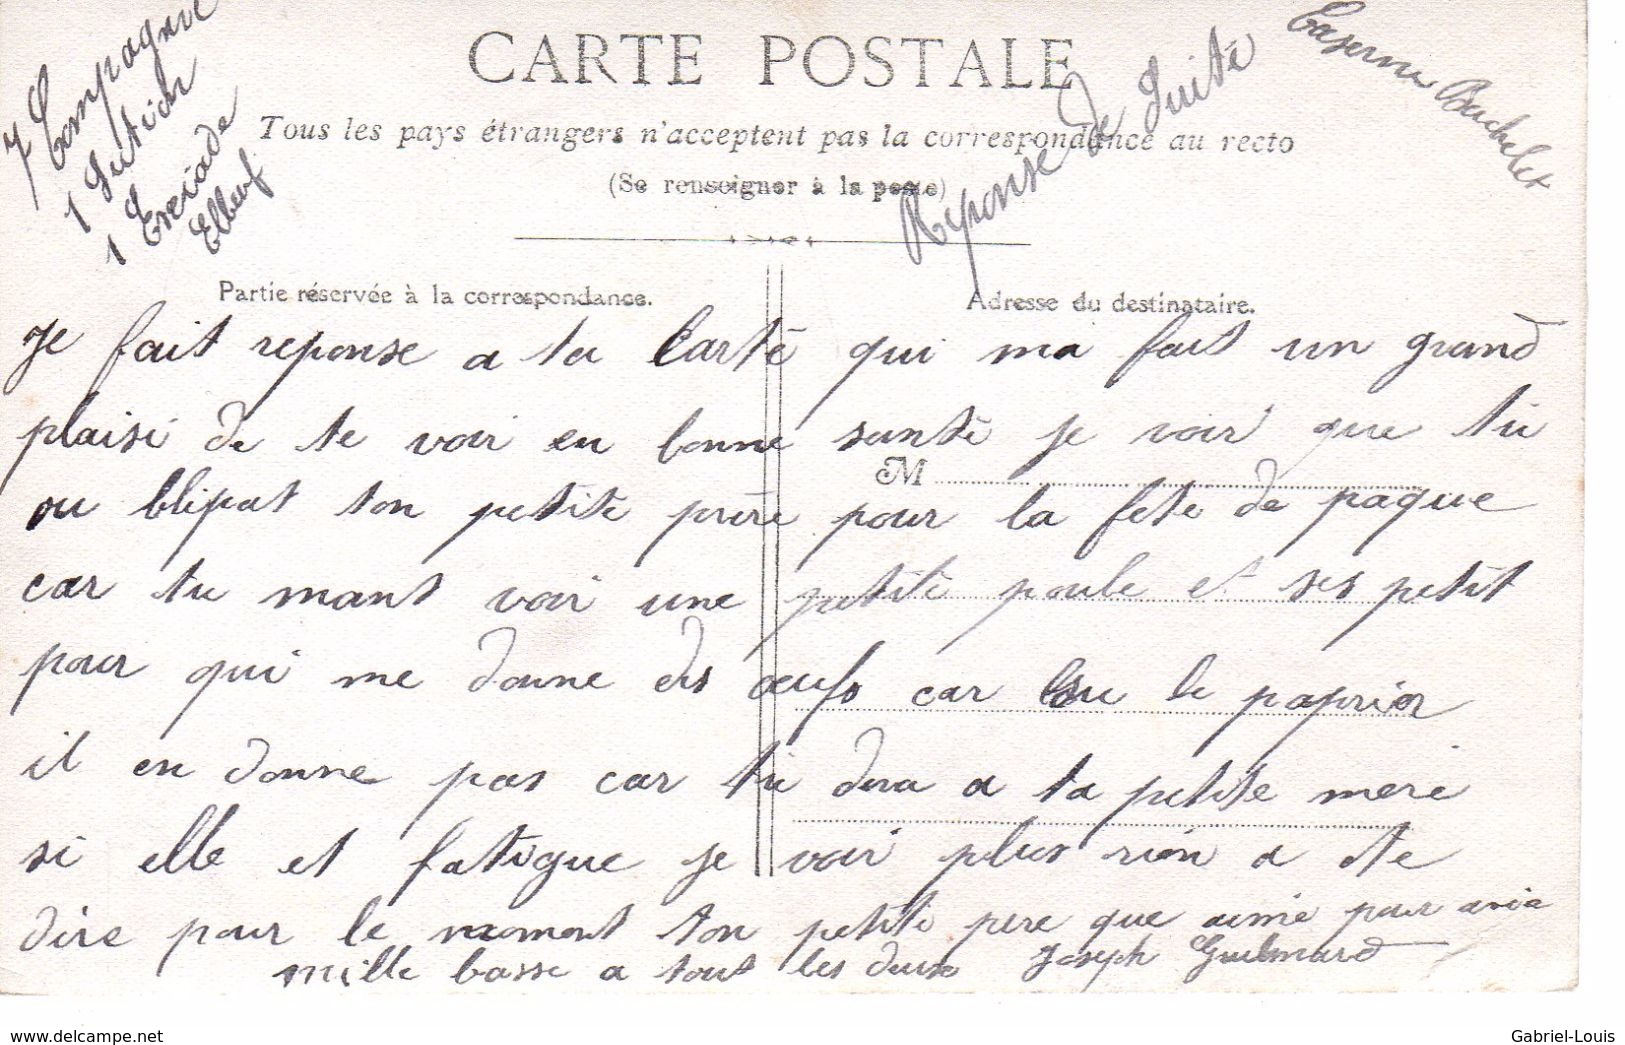 7 Compagnie
1 Sution
1 Esciade
Elbeuf
CARTE POSTALE
Tous les pays étrangers n'acceptent pas la correspondance au recto
(Se renseigner à la poste)
Reponse de Suite
Caserne Bachelet
Partie réservée à la correspondance.
Adresse du destinataire.
Je fait reponse a ta Carte qui ma fait un grand
plaisi de te voir en bonne santé je voir que tu
ou blipas ton petite prére pour la fete de paque
M
car tu mant voir une petite poule et ses petit
pour qui me donne des œufs car le paprior
il en donne pas car tu dira a ta petite mere
si elle et fatigue je voir plus rien a te
dire pour le moment ton petite pere que aime pour avia
mille basse a tout les deux Joseph Guilmard
www.delcampe.net
Gabriel-Louis